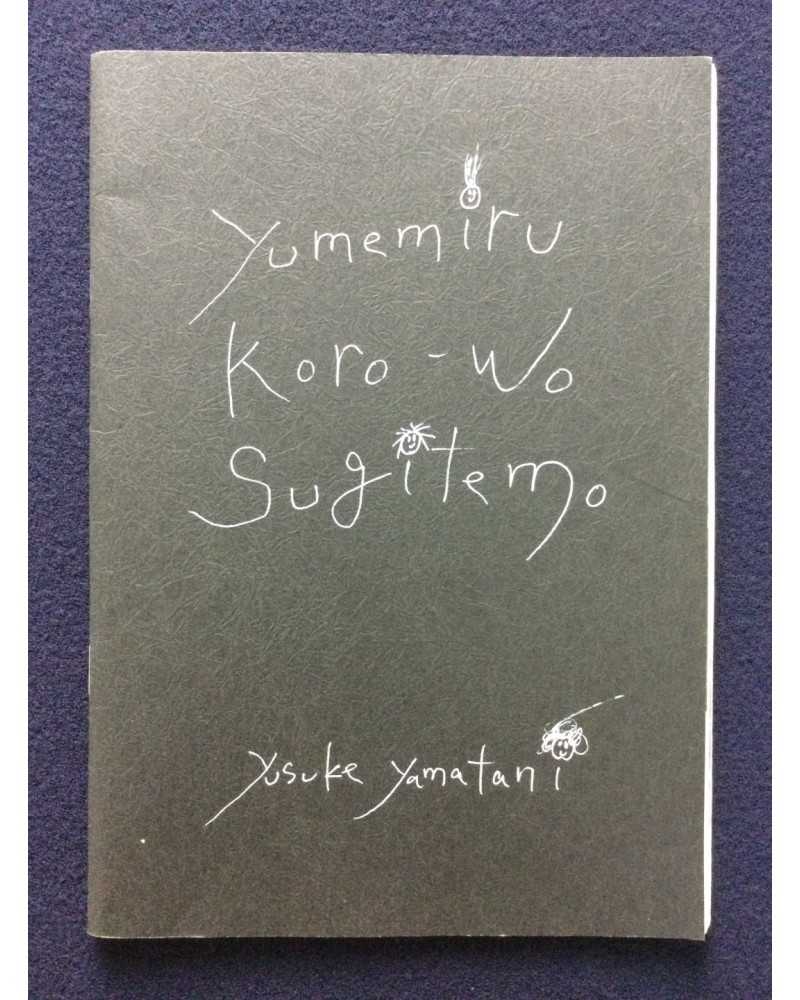 Yumemiru
Koro-Wo
Sugitemo
Yusuke Yamatani